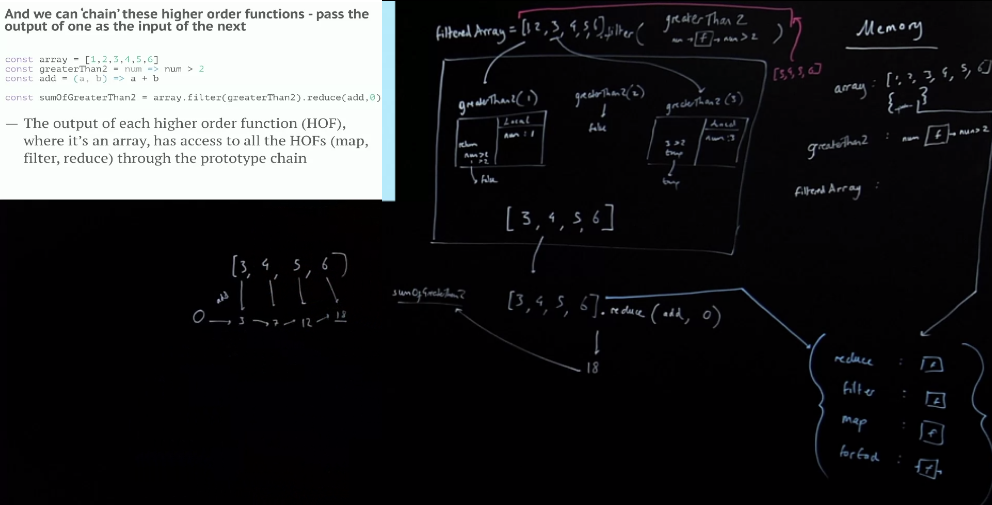 And we can 'chain' these higher order functions - pass the
output of one as the input of the next
const array = [1,2,3,4,5,6]
const greaterThan2 = num => num > 2
const add = (a, b) => a + b
const sumOfGreaterThan2 = array.filter(greaterThan2).reduce(add,0)
— The output of each higher order function (HOF),
where it's an array, has access to all the HOFs (map,
filter, reduce) through the prototype chain
filteredArray = [1 2, 3, 4,5,6].filter( greaterThan 2 )
num → f → num > 2
[3,4,5,6]
greaterThan2(1)
Local
num : 1
return
num > 2
1 > 2
false
greaterThan2(2)
false
greaterThan2(3)
Local
num : 3
3 > 2
[3, 4, 5, 6]
sumOfGreaterThan2
[3, 4, 5, 6].reduce (add, 0)
18
[3, 4, 5, 6]
add
0 → 3 → 7 → 12 → 18
Memory
array : [1, 2, 3, 4, 5, 6]
greaterThan2 : num f → num > 2
filteredArray :
reduce : f
filter : f
map : f
forEach : f